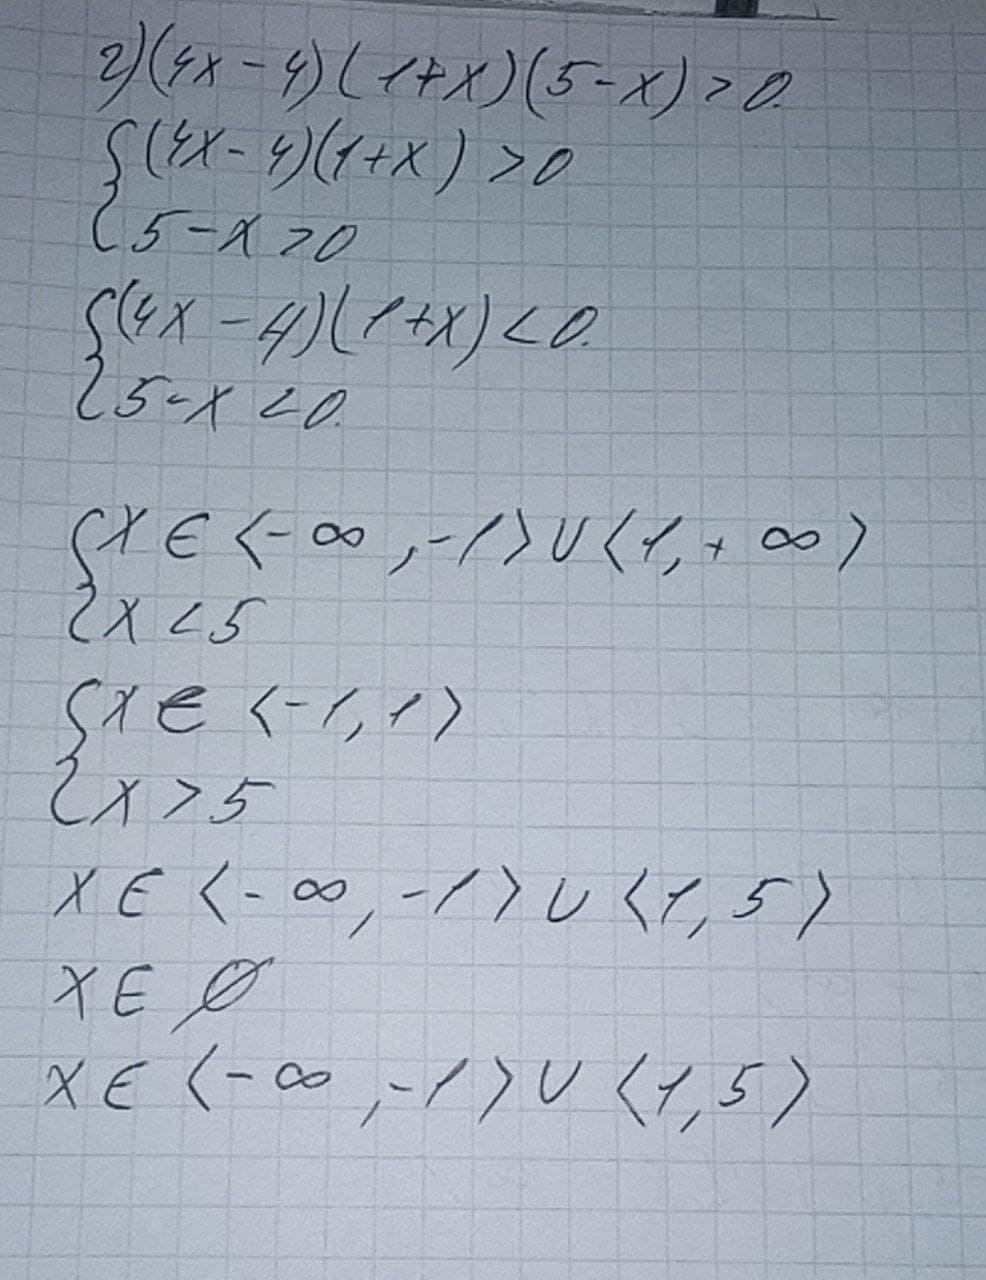 г)(4x-4)(1+x)(5-x)>0.
{(4x-4)(1+x)>0
5-x>0
{(4x-4)(1+x)<0.
5-x<0.
{x∈<-∞,-1>∪<1,+∞>
x<5
{x∈<-1,1>
x>5
x∈<-∞,-1>∪<1,5>
x∈∅
x∈<-∞,-1>∪<1,5>